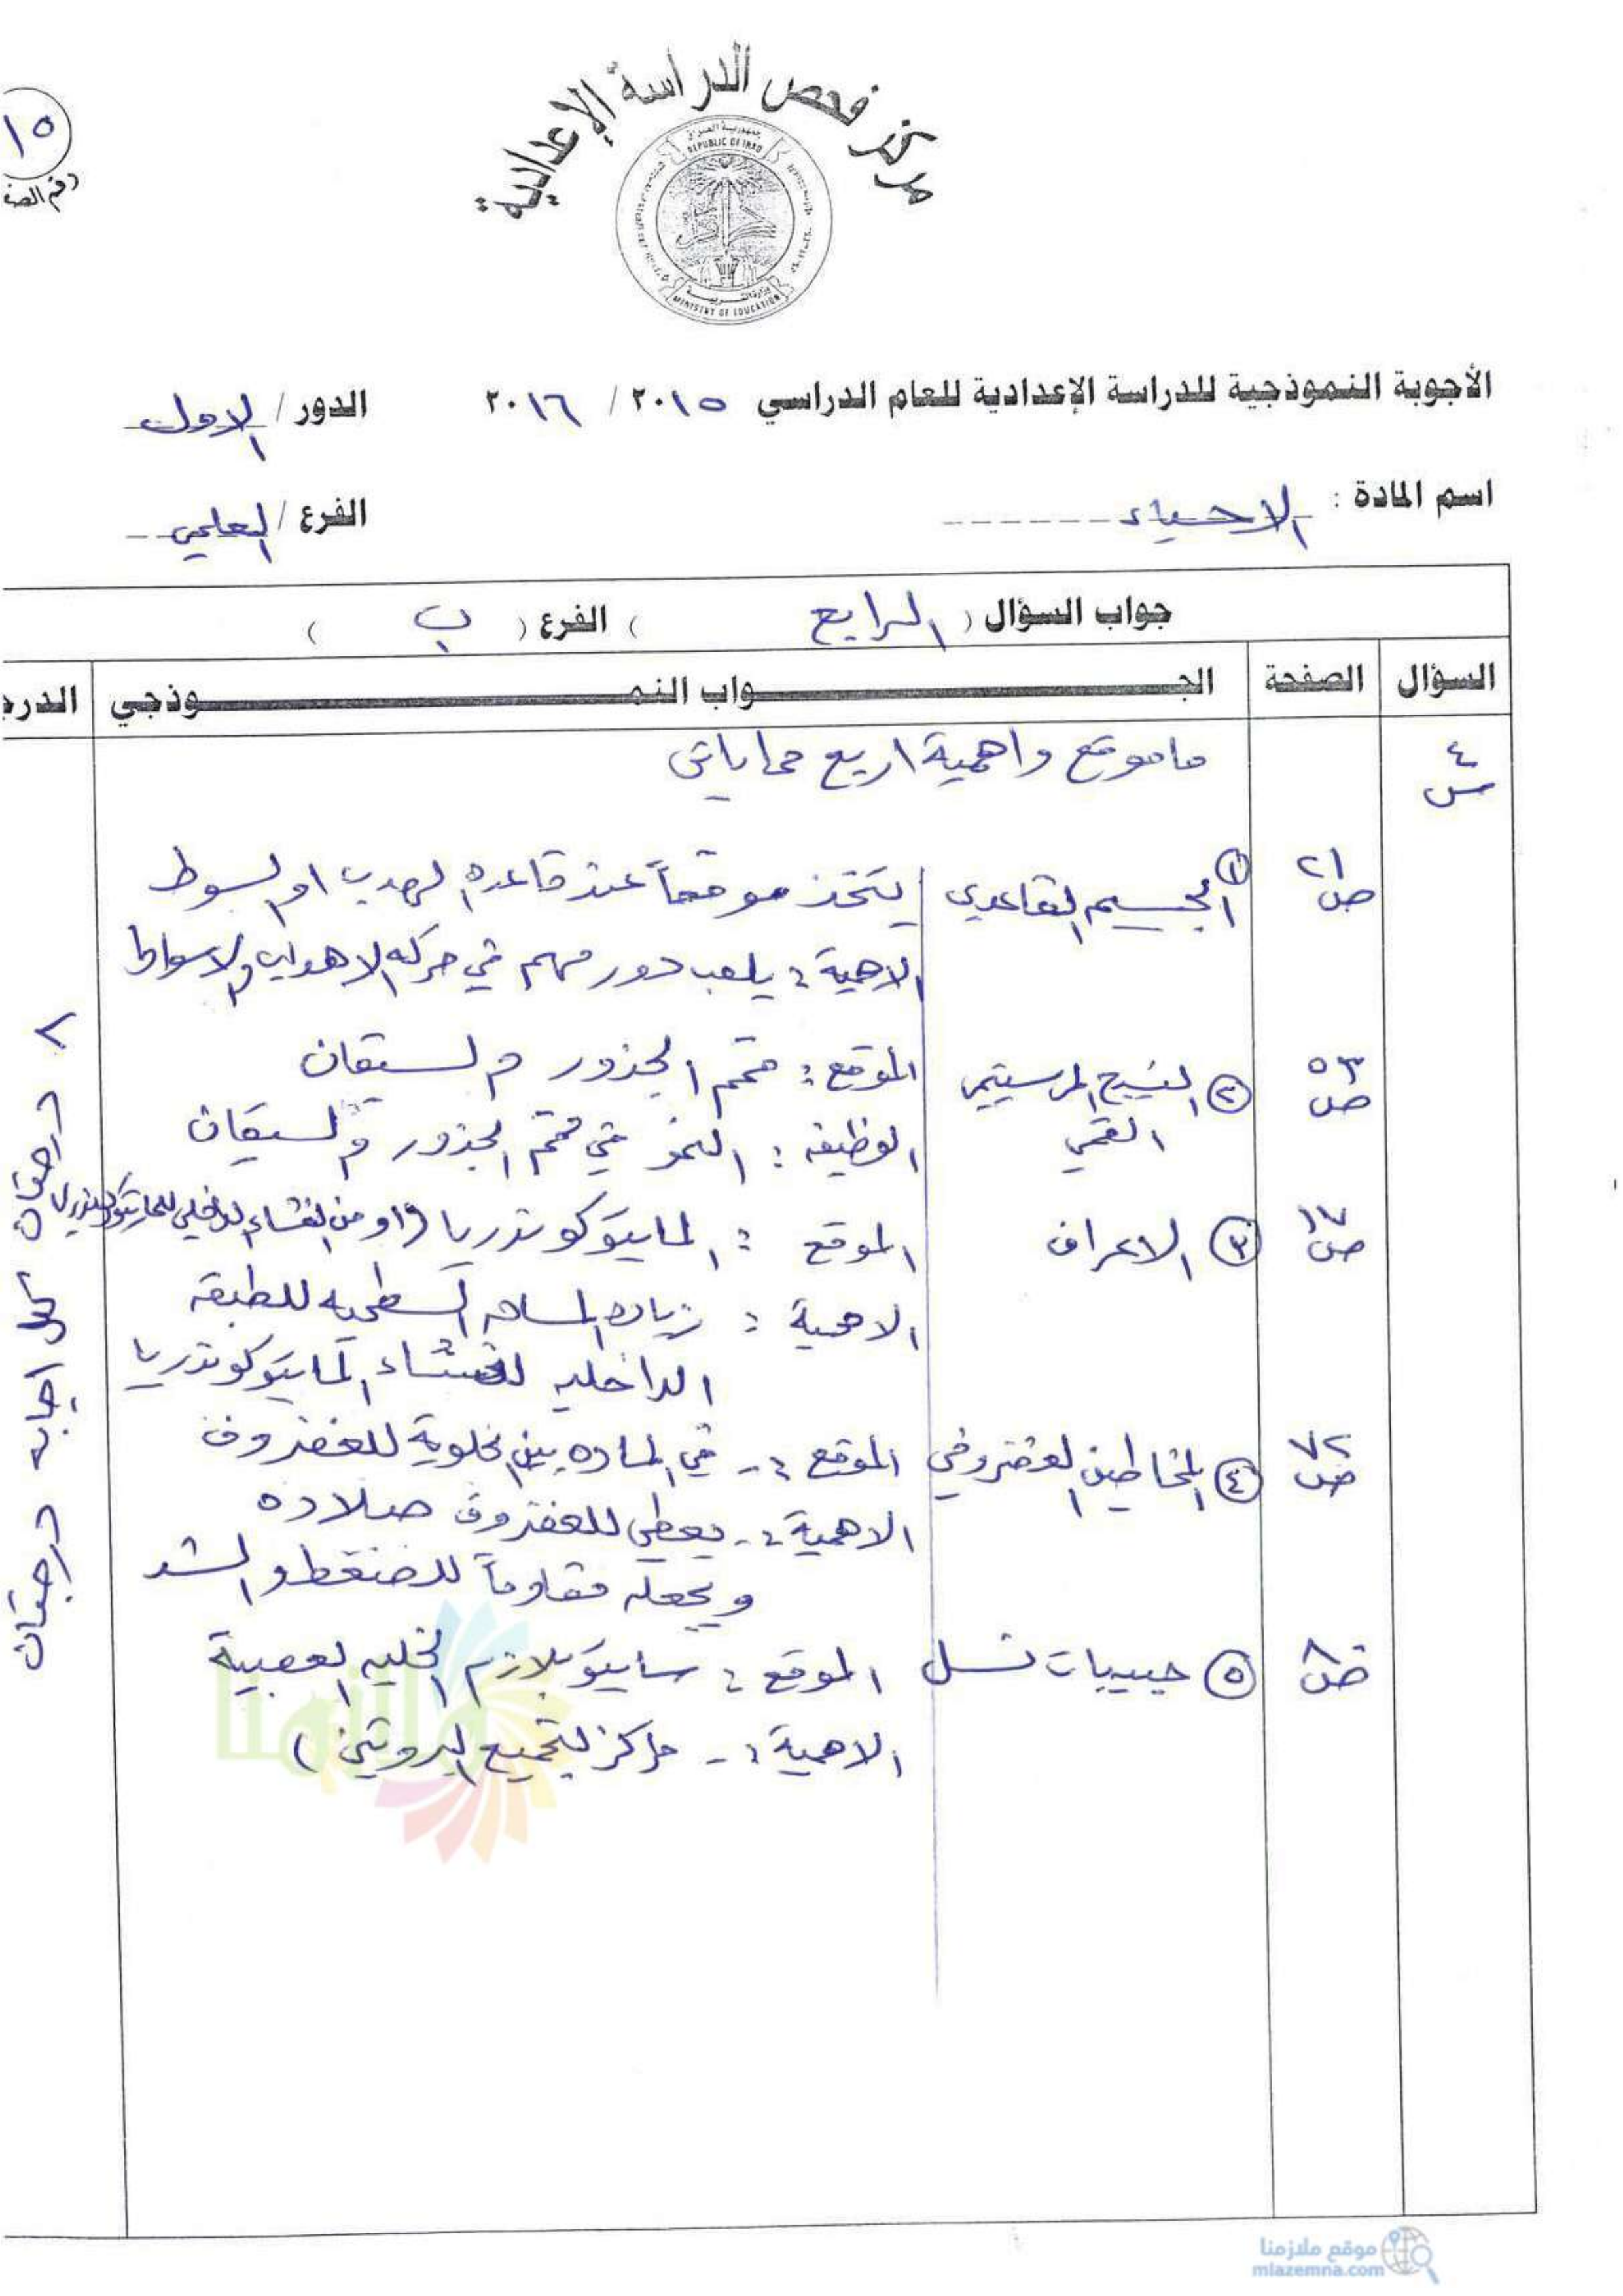 مركز فحص الدراسة الإعدادية
جمهورية العراق
REPUBLIC OF IRAQ
وزارة التربية
MINISTRY OF EDUCATION
١٥
رقم الصف
الأجوبة النموذجية للدراسة الإعدادية للعام الدراسي ٢٠١٥ / ٢٠١٦ الدور / الاول
اسم المادة : الاحياء الفرع / العلمي
جواب السؤال ( الرابع ) الفرع ( ب )
السؤال الصفحة الجــواب النمــوذجي الدرج
س٤ ما موقع واهمية اربع مما ياتي
ص٢١ ① الجسيم القاعدي يتخذ موقعاً عند قاعده الهدب او السوط
الاهمية : يلعب دور مهم في حركه الاهداب والاسواط
ص٥٣ ② النسيج المرستيمي الموقع : قمم الجذور والسيقان
القمي الوظيفه : النمو في قمم الجذور والسيقان
ص١٧ ③ الاعراف الموقع : المايتوكوندريا (او من الغشاء الداخلي للمايتوكوندريا
الاهمية : زياده المساحه السطحيه للطبقه
الداخليه لغشاء المايتوكوندريا
ص٧٢ ④ المخاطين الغضروفي الموقع :- في الماده بين الخلوية للغضروف
الاهمية :- يعطي للغضروف صلاده
ويجعله مقاوماً للضغط والشد
ص٨٠ ⑤ حبيبات نسل الموقع : سايتوبلازم الخليه العصبية
الاهمية :- مراكز لتجميع البروتين )
٨ درجات كل اجابه درجتان
ملازمنا
موقع ملازمنا
mlazemna.com